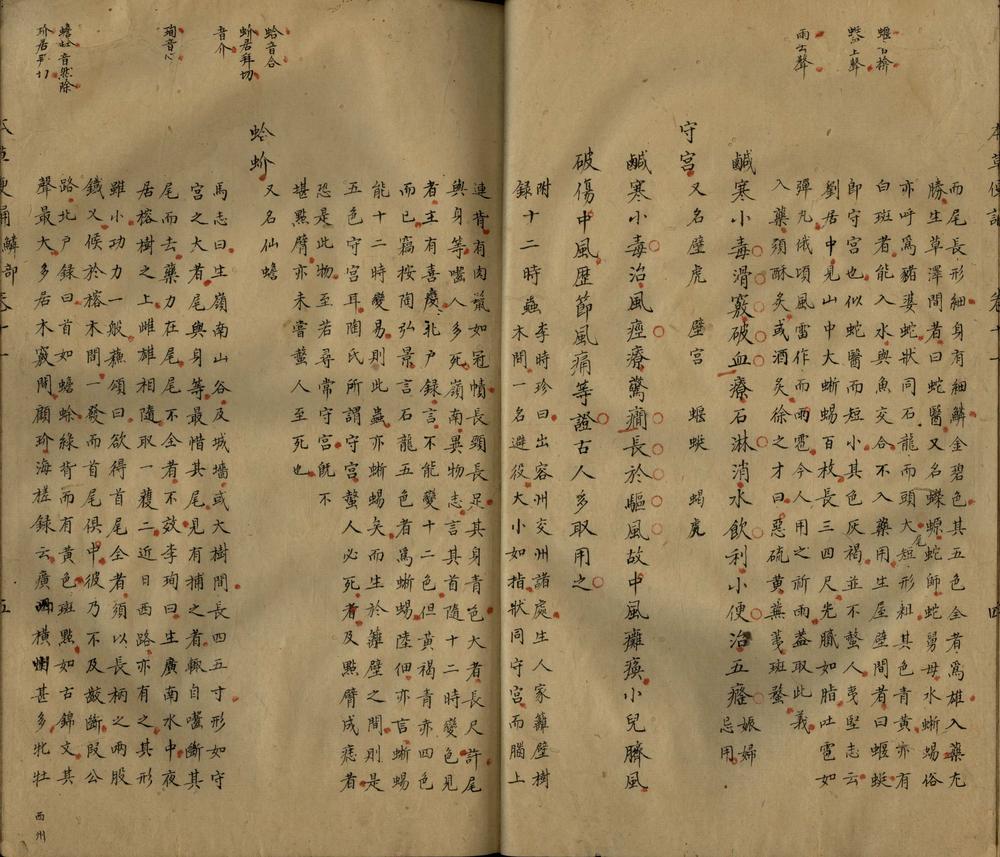 蝘古掞
上聲
雨去聲
而尾長形細身有細鱗金碧色其五色全者為雄入藥尤
勝生草澤間者曰蛇醫又名蠑螈蛇師蛇舅母水蜥蜴俗
亦呼為豬婆蛇狀同石龍而頭大尾短形粗其色青黃亦有
白斑者能入水與魚交合不入藥用生屋壁間者曰蝘蜓
即守宮也似蛇醫而短小其色灰褐並不螫人夷堅志云
劉居中見山中大蜥蜴百枚長三四尺光膩如脂吐雹如
彈丸俄頃風雷作而雨雹今人用之祈雨蓋取此義
入藥須酥炙或酒炙徐之才曰惡硫黃蕪荑斑蝥
鹹寒小毒滑竅破血療石淋消水飲利小便治五癃娠婦
忌用
守宮又名壁虎 壁宮 蝘蜓 蝎虎
鹹寒小毒治風痙療驚癇長於驅風故中風癱瘓小兒臍風
破傷中風歷節風痛等證古人多取用之
附
錄十二時蟲李時珍曰出容州交州諸處生人家籬壁樹
木間一名避役大小如指狀同守宮而腦上
連背有肉鬣如冠幘長頸長足其身青色大者長尺許尾
與身等囓人多死嶺南異物志言其首隨十二時變色見
者主有喜慶北戶錄言不能變十二色但黃褐青赤四色
而已竊按陶弘景言石龍五色者為蜥蜴陸佃亦言蜥蜴
能十二時變易則此蟲亦蜥蜴矣而生於籬壁之間則是
五色守宮耳陶氏所謂守宮螫人必死者及點臂成痣者
恐是此物至若尋常守宮既不
堪點臂亦未嘗螫人至死也
蛤音合
蚧居拜切
音介
珣音心
蟾音然除
玠居拜切
蛤蚧又名仙蟾
馬志曰生嶺南山谷及城墻或大樹間長四五寸形如守
宮之大者尾與身等最惜其尾見有捕之者輒自囓斷其
尾而去藥力在尾尾不全者不效李珣曰生廣南水中夜
居榕樹之上雌雄相隨取一獲二近日西路亦有之其形
雖小功力一般蘇頌曰欲得首尾全者須以長柄之兩股
鐵叉候於榕木間一發而首尾俱中彼乃不及齧斷段公
路北戶錄曰首如蟾蜍綠背而有黃色斑點如古錦文其
聲最大多居木竅間顧玠海槎錄云廣西橫州甚多牝牡
西
州